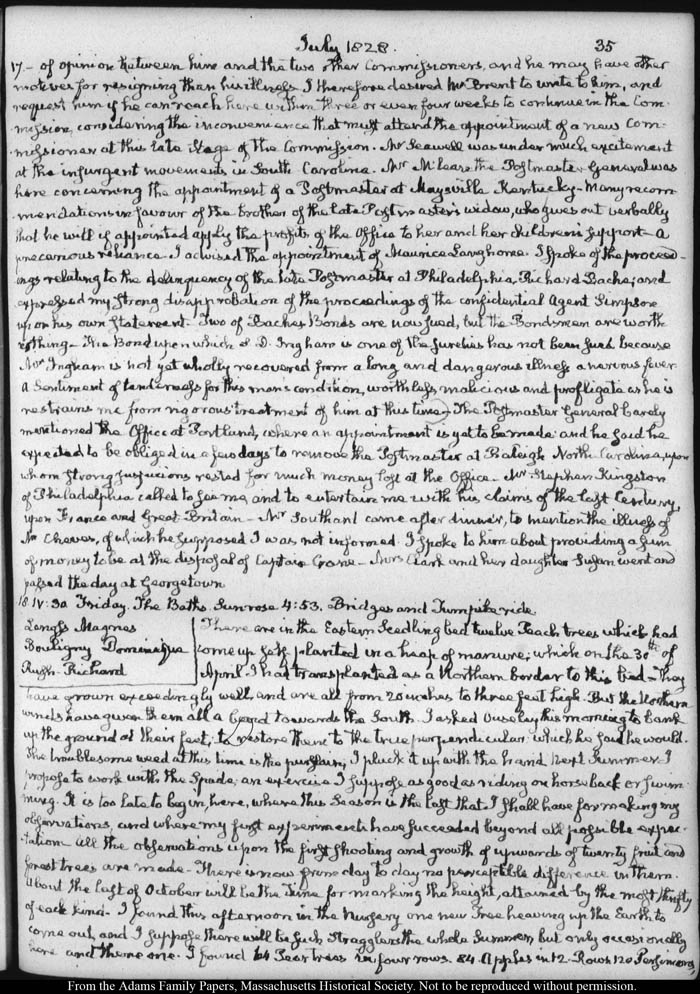 July 1828. 35
17.- of opinion between him and the two other Commissioners, and he may have other
motives for resigning than his illness I therefore desired Mr Brent to write to him, and
request him if he can reach here within three or even four weeks to continue in the Com-
mission, considering the inconvenience that must attend the appointment of a new Com-
missioner at this late Stage of the Commission. Mr Seawell was under much excitement
at the insurgent movements in South Carolina. Mr McLean the Postmaster General was
here concerning the appointment of a Postmaster at Maysville Kentucky- Many recom-
mendations in favour of the brother of the late Postmaster's widow, who gives out verbally
that he will if appointed apply the profits of the Office to her and her children's support- a
precarious reliance. I advised the appointment of Maurice Langhorne. I spoke of the proceed-
ings relating to the delinquency of the late Postmaster at Philadelphia, Richard Bache; and
expressed my strong disapprobation of the proceedings of the confidential Agent Simpson
upon his own Statement. Two of Bache's Bonds are now sued, but the Bondsmen are worth
nothing- The Bond upon which S. D. Ingham is one of the sureties has not been sued because
Mr Ingham is not yet wholly recovered from a long and dangerous illness a nervous fever.
A Sentiment of tenderness for this man's condition, worthless, malicious and profligate as he is
restrains me from rigorous treatment of him at this time- The Postmaster General barely
mentioned the Office at Portland, where an appointment is yet to be made: and he said he
expected to be obliged in a few days to remove the Postmaster at Raleigh North Carolina, upon
whom strong suspicions rested for much money lost at the Office- Mr Stephen Kingston
of Philadelphia called to see me, and to entertain me with his claims of the last Century,
upon France and Great Britain- Mr Southard came after dinner, to mention the illness of
Mr Cheves, of which he supposed I was not informed. I spoke to him about providing a sum
of money to be at the disposal of Captain Crane- Mrs Clark and her daughter Susan went and
passed the day at Georgetown
18. IV: 30. Friday. The Baths. Sun rose 4:53. Bridges and Turnpike ride
Magnes
Bouligny Dominique
Rush- Richard
There are in the Eastern Seedling bed twelve Peach trees which had
come up self planted in a heap of manure; which on the 30th of
April I had transplanted as a Northern border to this bed- They
have grown exceedingly well, and are all from 20 inches to three feet high. But the Northern
winds have given them all a bend towards the South. I asked Ouseley this morning to bank
up the ground at their feet, to restore them to the true perpendicular which he said he would.
The troublesome weed at this time is the purslain; I pluck it up with the hand. Next Summer I
propose to work with the Spade; an exercise I suppose as good as riding on horseback or swim-
ming. It is too late to begin, here, where this Season is the last that I shall have for making my
observations, and where my first experiments have succeeded beyond all possible expec-
tation- All the observations upon the first shooting and growth of upwards of twenty fruit and
forest trees are made- There is now from day to day no perceptible difference in them.
About the last of October will be the time for marking the height, attained by the most thrifty
of each kind- I found this afternoon in the Nursery one new Tree heaving up the Earth to
come out, and I suppose there will be such Stragglers the whole Summer, but only occasionally
here and there one. I found 64 Pear trees in four rows. 84 Apples in 12 Rows 120 Persimmons,
From the Adams Family Papers, Massachusetts Historical Society. Not to be reproduced without permission.